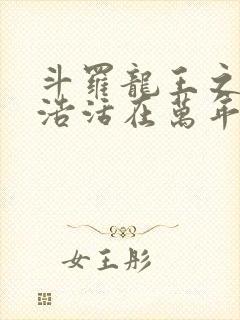 斗羅龍王之
浩活在萬年
女王彤